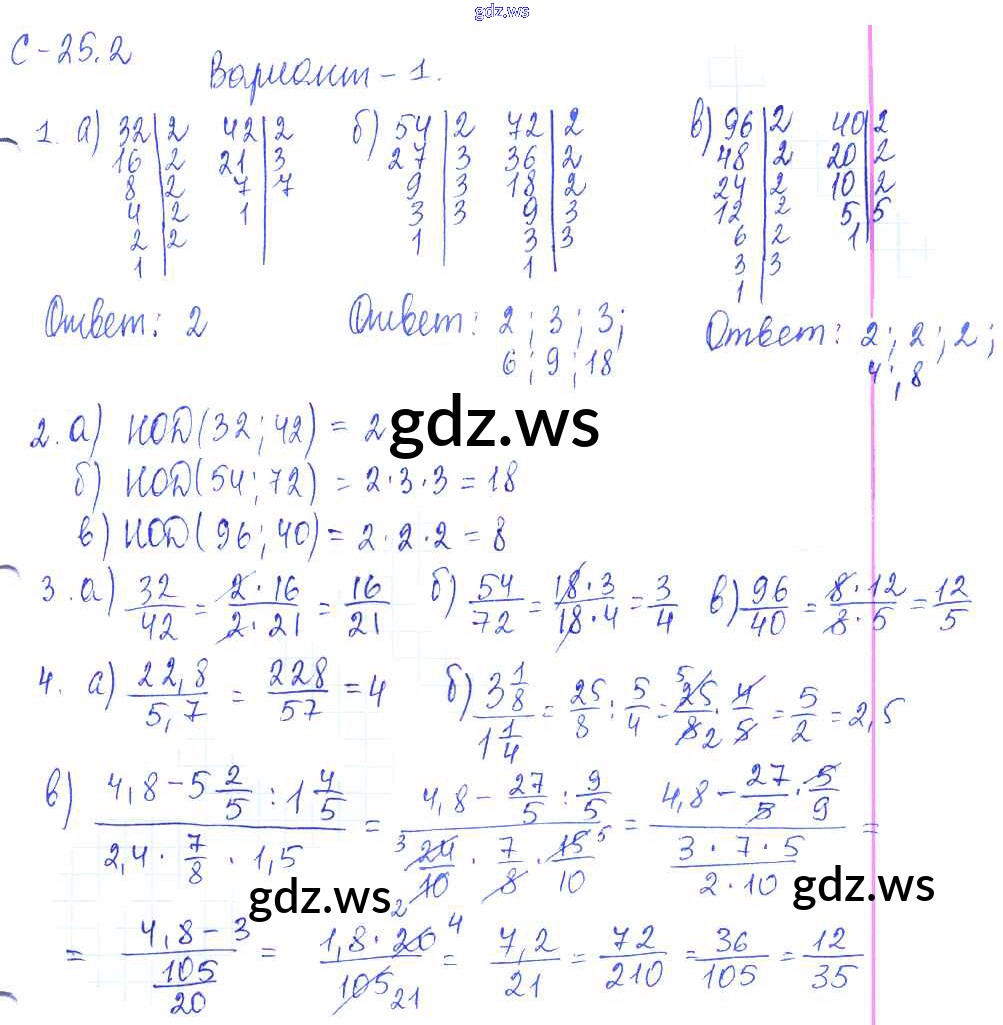 gdz.ws
С-25.2
Вариант - 1.
1. а) 32|2 42|2 б) 54|2 72|2 в) 96|2 40|2
16|2 21|3 27|3 36|2 48|2 20|2
8|2 7|7 9|3 18|2 24|2 10|2
4|2 1 3|3 9|3 12|2 5|5
2|2 1 3|3 6|2 1
1 1 3|3
1
Ответ: 2 Ответ: 2; 3; 3; Ответ: 2; 2; 2;
6; 9; 18 4; 8
2. а) НОД(32; 42) = 2
gdz.ws
б) НОД(54; 72) = 2·3·3 = 18
в) НОД(96; 40) = 2·2·2 = 8
3. а) 32/42 = 2·16/2·21 = 16/21 б) 54/72 = 18·3/18·4 = 3/4 в) 96/40 = 8·12/8·5 = 12/5
4. а) 22,8/5,7 = 228/57 = 4 б) 3 1/8 / 1 1/4 = 25/8 : 5/4 = 5 25/8 2 · 4/5 = 5/2 = 2,5
в) 4,8 - 5 2/5 : 1 4/5 / 2,4 · 7/8 · 1,5 = 4,8 - 27/5 : 9/5 / 3 24/10 2 · 7/8 · 15/10 5 = 4,8 - 27/5 · 5/9 / 3·7·5/2·10 =
gdz.ws gdz.ws
= 4,8 - 3 / 105/20 = 1,8 · 20 4 / 105 21 = 7,2/21 = 72/210 = 36/105 = 12/35